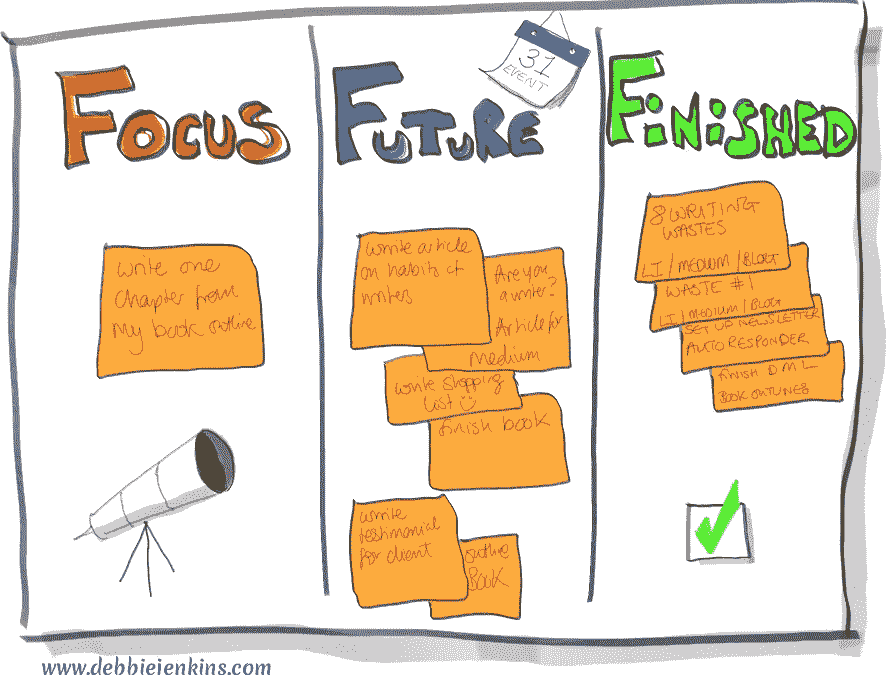 FOCUS
write one
chapter from
My book outline
FUTURE
31
EVENT
write article
on habits of
writers
Are you
a writer?
Article for
Medium
write shopping
list
finish book
write
testimonial
for client
outline
BOOK
FINISHED
8 WRITING
WASTES
LI / MEDIUM / BLOG
WASTE #1
LI / MEDIUM / BLOG
SET UP NEWSLETTER
AUTO RESPONDER
FINISH DML
BOOK OUTLINES
www.debbiejenkins.com